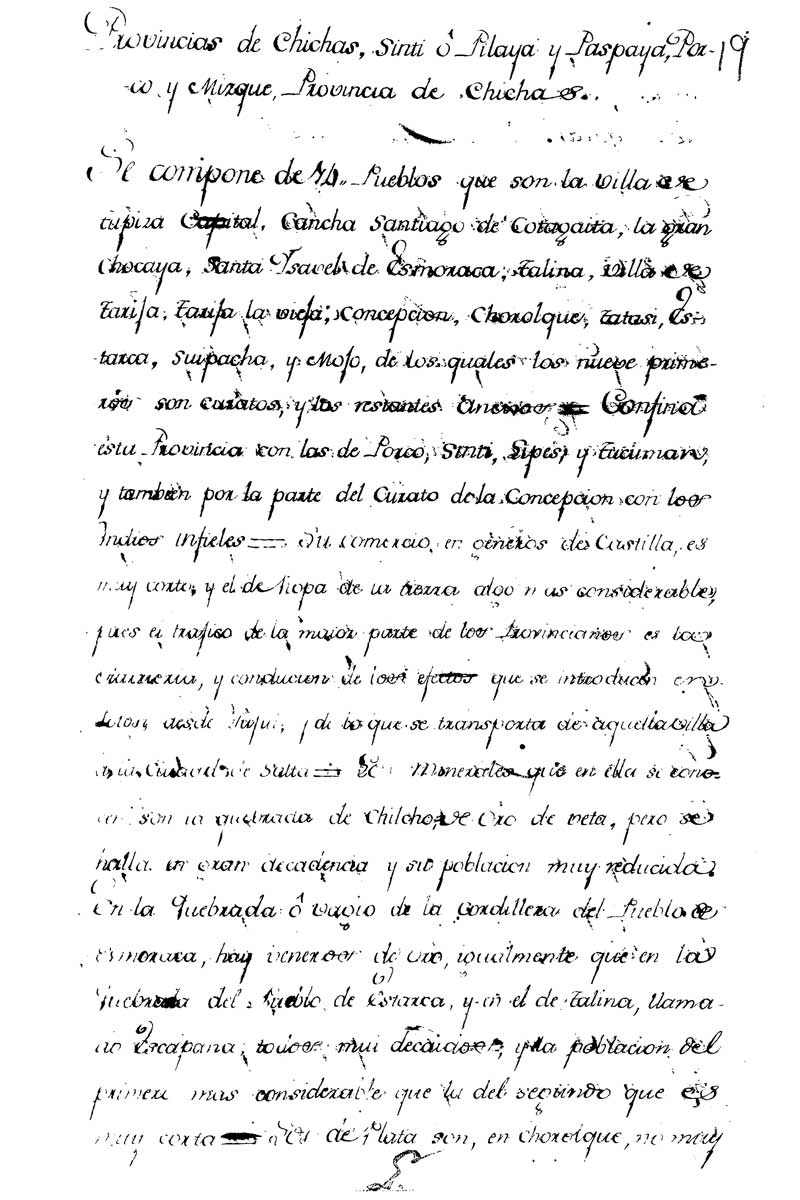 Provincias de Chichas, Sinti ô Pilaya y Paspaya, Por- 19
co y Mizque, Provincia de Chichas.
Se compone de 14,, Pueblos que son la Villa de
tupiza Capital, Cancha Santiago de Cotagaita, la gran
Chocaya, Santa Ysavel de Esmoraca, Talina, Villa de
Tarija, Tarija la vieja, Concepcion, Chorolque, tatasi, Es-
tarca, Suipacha, y Mojo, de los quales los nueve prime-
ros son curatos, y los restantes Anexos = Confina
esta Provincia con las de Porco, Sinti, Lipes, y Tucuman,
y tambien por la parte del Curato de la Concepcion con los
Indios infieles = Su comercio, en géneros de Castilla, es
muy corto, y el de Ropa de la tierra algo mas considerable,
pues el trafico de la maior parte de los Provincianos es la
y conducion de los efectos que se introducen en
desde y de lo que se transporta de aquella Villa
a la Ciudad de Salta = Minerales que en ella se cono-
cen son la quebrada de Chilcho, de Oro de veta, pero se
halla en gran decadencia y su poblacion muy reducida.
En la Quebrada ô vagio de la Cordillera del Pueblo de
Esmoraca, hay veneros de Oro, igualmente que en la
Quebrada del Pueblo de Estarca, y en el de Talina, llama-
do Escapana, todos mui decaidos, y la poblacion del
primero mas considerable que la del segundo que es
muy corta = Los de Plata son, en Chorolque, no muy